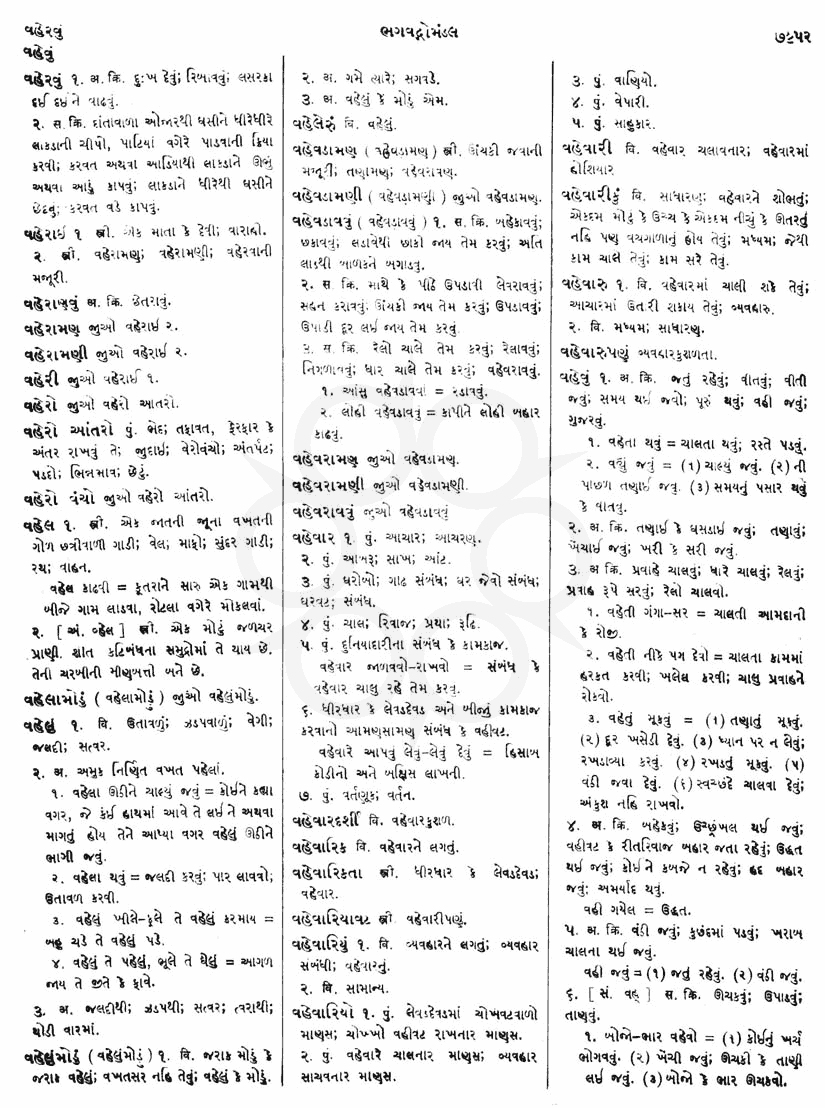 વહેરવું
ભગવદ્ગોમંડલ
૭૯૫૨
વહેવું
વહેરવું ૧. અ. ક્રિ. દુઃખ દેવું; રિબાવવું; લસરકા
દઈ દઈને વાઢવું.
૨. સ. ક્રિ. દાંતાવાળા ઓજારથી ઘસીને ધીરેધીરે
લાકડાની ચીપો, પાટિયાં વગેરે પાડવાની ક્રિયા
કરવી; કરવત અથવા આડિયાથી લાકડાને ઊભું
અથવા આડું કાપવું; લાકડાને ધીરેથી ઘસીને
છેદવું; કરવત વડે કાપવું.
વહેરાઈ ૧ સ્ત્રી. એક માતા કે દેવી; વારાહી.
૨. સ્ત્રી. વહેરામણ; વહેરામણી; વહેરવાની
મજૂરી.
વહેરાણવું અ. ક્રિ. છેતરાવું.
વહેરામણ જુઓ વહેરાઈ ૨.
વહેરામણી જુઓ વહેરાઈ ૨.
વહેરી જુઓ વહેરાઈ ૧.
વહેરો જુઓ વહેરો આંતરો.
વહેરો આંતરો પું. ભેદ; તફાવત, ફેરફાર કે
અંતર રાખવું તે; જુદાઈ; વેરોવંચો; અંતર્પટ;
પડદો; ભિન્નભાવ; છેટું.
વહેરો વંચો જુઓ વહેરો આંતરો.
વહેલ ૧. સ્ત્રી. એક જાતની જૂના વખતની
ગોળ છત્રીવાળી ગાડી; વેલ; માફો; સુંદર ગાડી;
રથ; વાહન.
વહેલ કાઢવી = કૂતરાને સારુ એક ગામથી
બીજે ગામ લાડવા, રોટલા વગેરે મોકલવાં.
૨. [ અં. વ્હેલ ] સ્ત્રી. એક મોટું જળચર
પ્રાણી. શીત કટિબંધના સમુદ્રોમાં તે થાય છે.
તેની ચરબીની મીણબત્તી બને છે.
વહેલામોડું ( વહેલામોડું ) જુઓ વહેલુંમોડું.
વહેલું ૧. વિ. ઉતાવળું; ઝડપવાળું; વેગી;
જલદી; સત્વર.
૨. અ. અમુક નિર્ણિત વખત પહેલાં.
૧. વહેલા ઊઠીને ચાલ્યું જવું = કોઈને કહ્યા
વગર, જે કંઈ હાથમાં આવે તે લઈને અથવા
માગતું હોય તેને આપ્યા વગર વહેલું ઊઠીને
ભાગી જવું.
૨. વહેલા થવું = જલદી કરવું; પાર લાવવો;
ઉતાવળ કરવી.
૩. વહેલું ખીલે-ફૂલે તે વહેલું કરમાય =
બહુ ચડે તે વહેલું પડે.
૪. વહેલું તે પહેલું, ભૂલે તે ઘેલું = આગળ
જાય તે જીતે કે ફાવે.
૩. અ. જલદીથી; ઝડપથી; સત્વર; ત્વરાથી;
થોડી વારમાં.
વહેલુંમોડું (વહેલુંમોડું) ૧. વિ. જરાક મોડું કે
જરાક વહેલું; વખતસર નહિ તેવું; વહેલું કે મોડું.
૨. અ. ગમે ત્યારે; સગવડે.
૩. અ. વહેલું કે મોડું એમ.
વહેલેરું વિ. વહેલું.
વહેવડામણ ( વહેવડામણ ) સ્ત્રી. ઊંચકી જવાની
મજૂરી; તણામણ; વહેવરાવણ.
વહેવડામણી ( વહેવડામણી ) જુઓ વહેવડામણ.
વહેવડાવવું ( વહેવડાવવું ) ૧. સ. ક્રિ. બહેકાવવું;
છકાવવું; લડાવેથી છાકી જાય તેમ કરવું; અતિ
લાડથી બાળકને બગાડવું.
૨. સ. ક્રિ. માથે કે પીઠે ઉપડાવી લેવરાવવું;
સહન કરાવવું; ઊંચકી જાય તેમ કરવું; ઉપડાવવું;
ઉપાડી દૂર લઈ જાય તેમ કરવું.
૩. સ. ક્રિ. રેલો ચાલે તેમ કરવું; રેલાવવું;
નિગળાવવું; ધાર ચાલે તેમ કરવું; વહેવરાવવું.
૧. આંસુ વહેવડાવવાં = રડાવવું.
૨. લોહી વહેવડાવવું = કાપીને લોહી બહાર
કાઢવું.
વહેવરામણ જુઓ વહેવડામણ.
વહેવરામણી જુઓ વહેવડામણી.
વહેવરાવવું જુઓ વહેવડાવવું
વહેવાર ૧. પું. આચાર; આચરણ.
૨. પું. આબરૂ; સાખ; આંટ.
૩. પું. ઘરોબો; ગાઢ સંબંધ; ઘર જેવો સંબંધ;
ઘરવટ; સંબંધ.
૪. પું. ચાલ; રિવાજ; પ્રથા; રૂઢિ.
૫. પું. દુનિયાદારીના સંબંધ કે કામકાજ.
વહેવાર જાળવવો-રાખવો = સંબંધ કે
વહેવાર ચાલુ રહે તેમ કરવું.
૬. ધીરધાર કે લેવડદેવડ અને બીજાં કામકાજ
કરવાનો આમણસામણ સંબંધ કે વહીવટ.
વહેવારે આપવું લેવું-લેવું દેવું = હિસાબ
કોડીનો અને બક્ષિસ લાખની.
૭. પું. વર્તણૂક; વર્તન.
વહેવારદર્શી વિ. વહેવારકુશળ.
વહેવારિક વિ. વહેવારને લગતું.
વહેવારિકતા સ્ત્રી. ધીરધાર કે લેવડદેવડ;
વહેવાર.
વહેવારિયાવટ સ્ત્રી વહેવારીપણું.
વહેવારિયું ૧. વિ. વ્યવહારને લગતું; વ્યવહાર
સંબંધી; વહેવારનું.
૨. વિ. સામાન્ય.
વહેવારિયો ૧. પું. લેવડદેવડમાં ચોખવટવાળો
માણસ; ચોખ્ખો વહીવટ રાખનાર માણસ.
૨. પું. વહેવારે ચાલનાર માણસ; વ્યવહાર
સાચવનાર માણસ.
૩. પું. વાણિયો.
૪. પું. વેપારી.
૫. પું. સાહુકાર.
વહેવારી વિ. વહેવાર ચલાવનાર; વહેવારમાં
હોશિયાર
વહેવારીકું વિ. સાધારણ; વહેવારને શોભતું;
એકદમ મોટું કે ઉચ્ચ કે એકદમ નીચું કે ઊતરતું
નહિ પણ વચગાળાનું હોય તેવું; મધ્યમ; જેથી
કામ ચાલે તેવું; કામ સરે તેવું.
વહેવારુ ૧. વિ. વહેવારમાં ચાલી શકે તેવું;
આચારમાં ઉતારી શકાય તેવું; વ્યવહારુ.
૨. વિ. મધ્યમ; સાધારણ.
વહેવારુપણું વ્યવહારકુશળતા.
વહેવું ૧. અ. ક્રિ. જતું રહેવું; વીતવું; વીતી
જવું; સમય થઈ જવો; પૂરું થવું; વહી જવું;
ગુજરવું.
૧. વહેતા થવું = ચાલતા થવું; રસ્તે પડવું.
૨. વહ્યું જવું = (૧) ચાલ્યું જવું. (૨) ની
પાછળ તણાઈ જવું. (૩) સમયનું પસાર થવું
કે વીતવું.
૨. અ. ક્રિ. તણાઈ કે ઘસડાઈ જવું; તણાવું;
ખેંચાઈ જવું; ખરી કે સરી જવું.
૩. અ ક્રિ. પ્રવાહે ચાલવું; ધારે ચાલવું; રેલવું;
પ્રવાહ રૂપે સરવું; રેલો ચાલવો.
૧. વહેતી ગંગા-સર = ચાલતી આમદાની
કે રોજી.
૨. વહેતી નીકે પગ દેવો = ચાલતા કામમાં
હરકત કરવી; ખલેલ કરવી; ચાલુ પ્રવાહને
રોકવો.
૩. વહેતું મૂકવું = (૧) તણાતું મૂકવું.
(૨) દૂર ખસેડી દેવું. (૩) ધ્યાન પર ન લેવું;
રખડાવ્યા કરવું. (૪) રખડતું મૂકવું. (૫)
વંઠી જવા દેવું. (૬) સ્વચ્છંદે ચાલવા દેવું;
અંકુશ નહિ રાખવો.
૪. અ. ક્રિ. બહેકવું; ઉચ્છૃંખલ થઈ જવું;
વહીવટ કે રીતરિવાજ બહાર જતા રહેવું; ઉદ્ધત
થઈ જવું; કોઈને કબજે ન રહેવું; હદ બહાર
જવું; અમર્યાદ થવું.
વહી ગયેલ = ઉદ્ધત.
૫. અ. ક્રિ. વંઠી જવું; કુછંદમાં પડવું; ખરાબ
ચાલના થઈ જવું.
વહી જવું = (૧) જતું રહેવું. (૨) વંઠી જવું.
૬. [ સં. વહ્ ] સ. ક્રિ. ઊંચકવું; ઉપાડવું;
તાણવું.
૧. બોજો-ભાર વહેવો = (૧) કોઈનું ખર્ચ
ભોગવવું. (૨) ખેંચી જવું; ઊંચકી કે તાણી
લઈ જવું. (૩) બોજો કે ભાર ઊંચકવો.